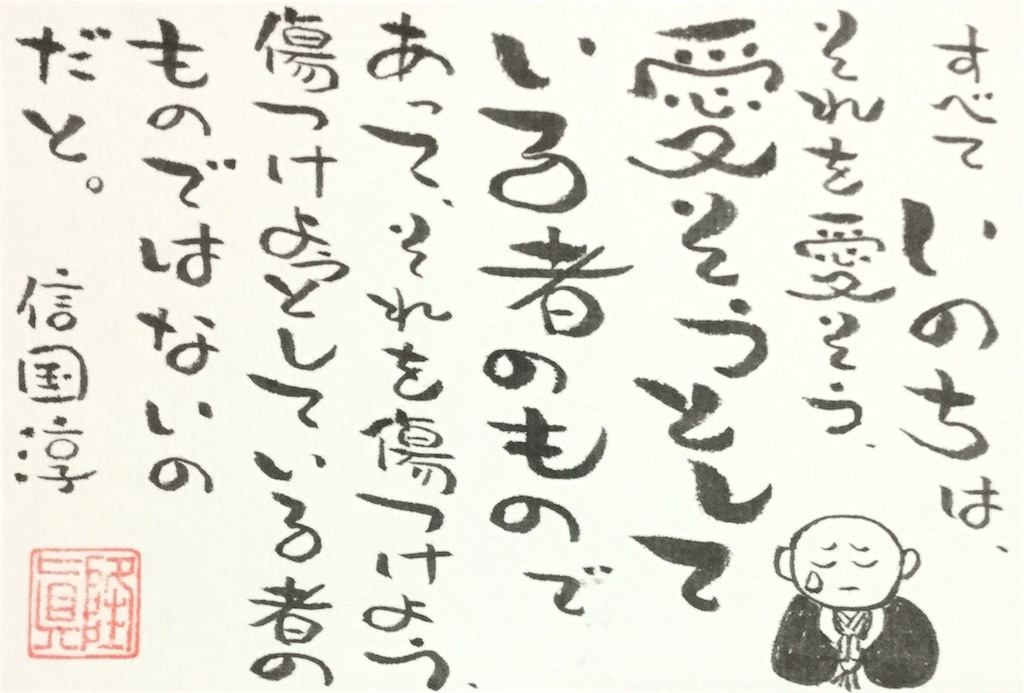 すべていのちは、
それを愛そう、
愛そうとして
いる者のもので
あって、それを傷つけよう、
傷つけようとしている者の
ものではないの
だと。
信国淳